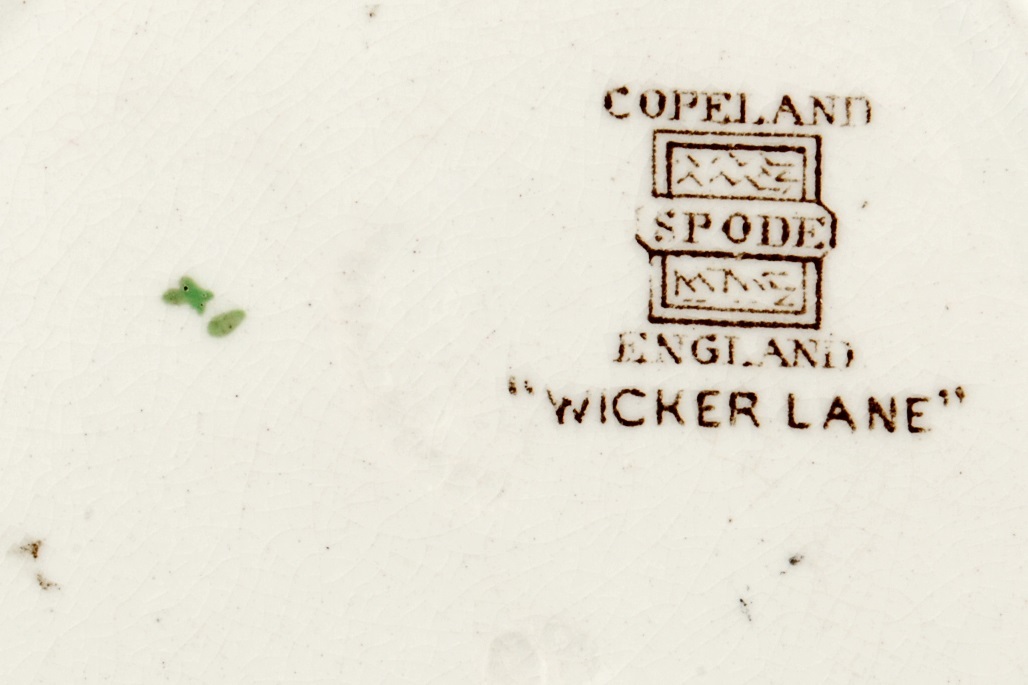 COPELAND
SPODE
ENGLAND
"WICKER LANE"